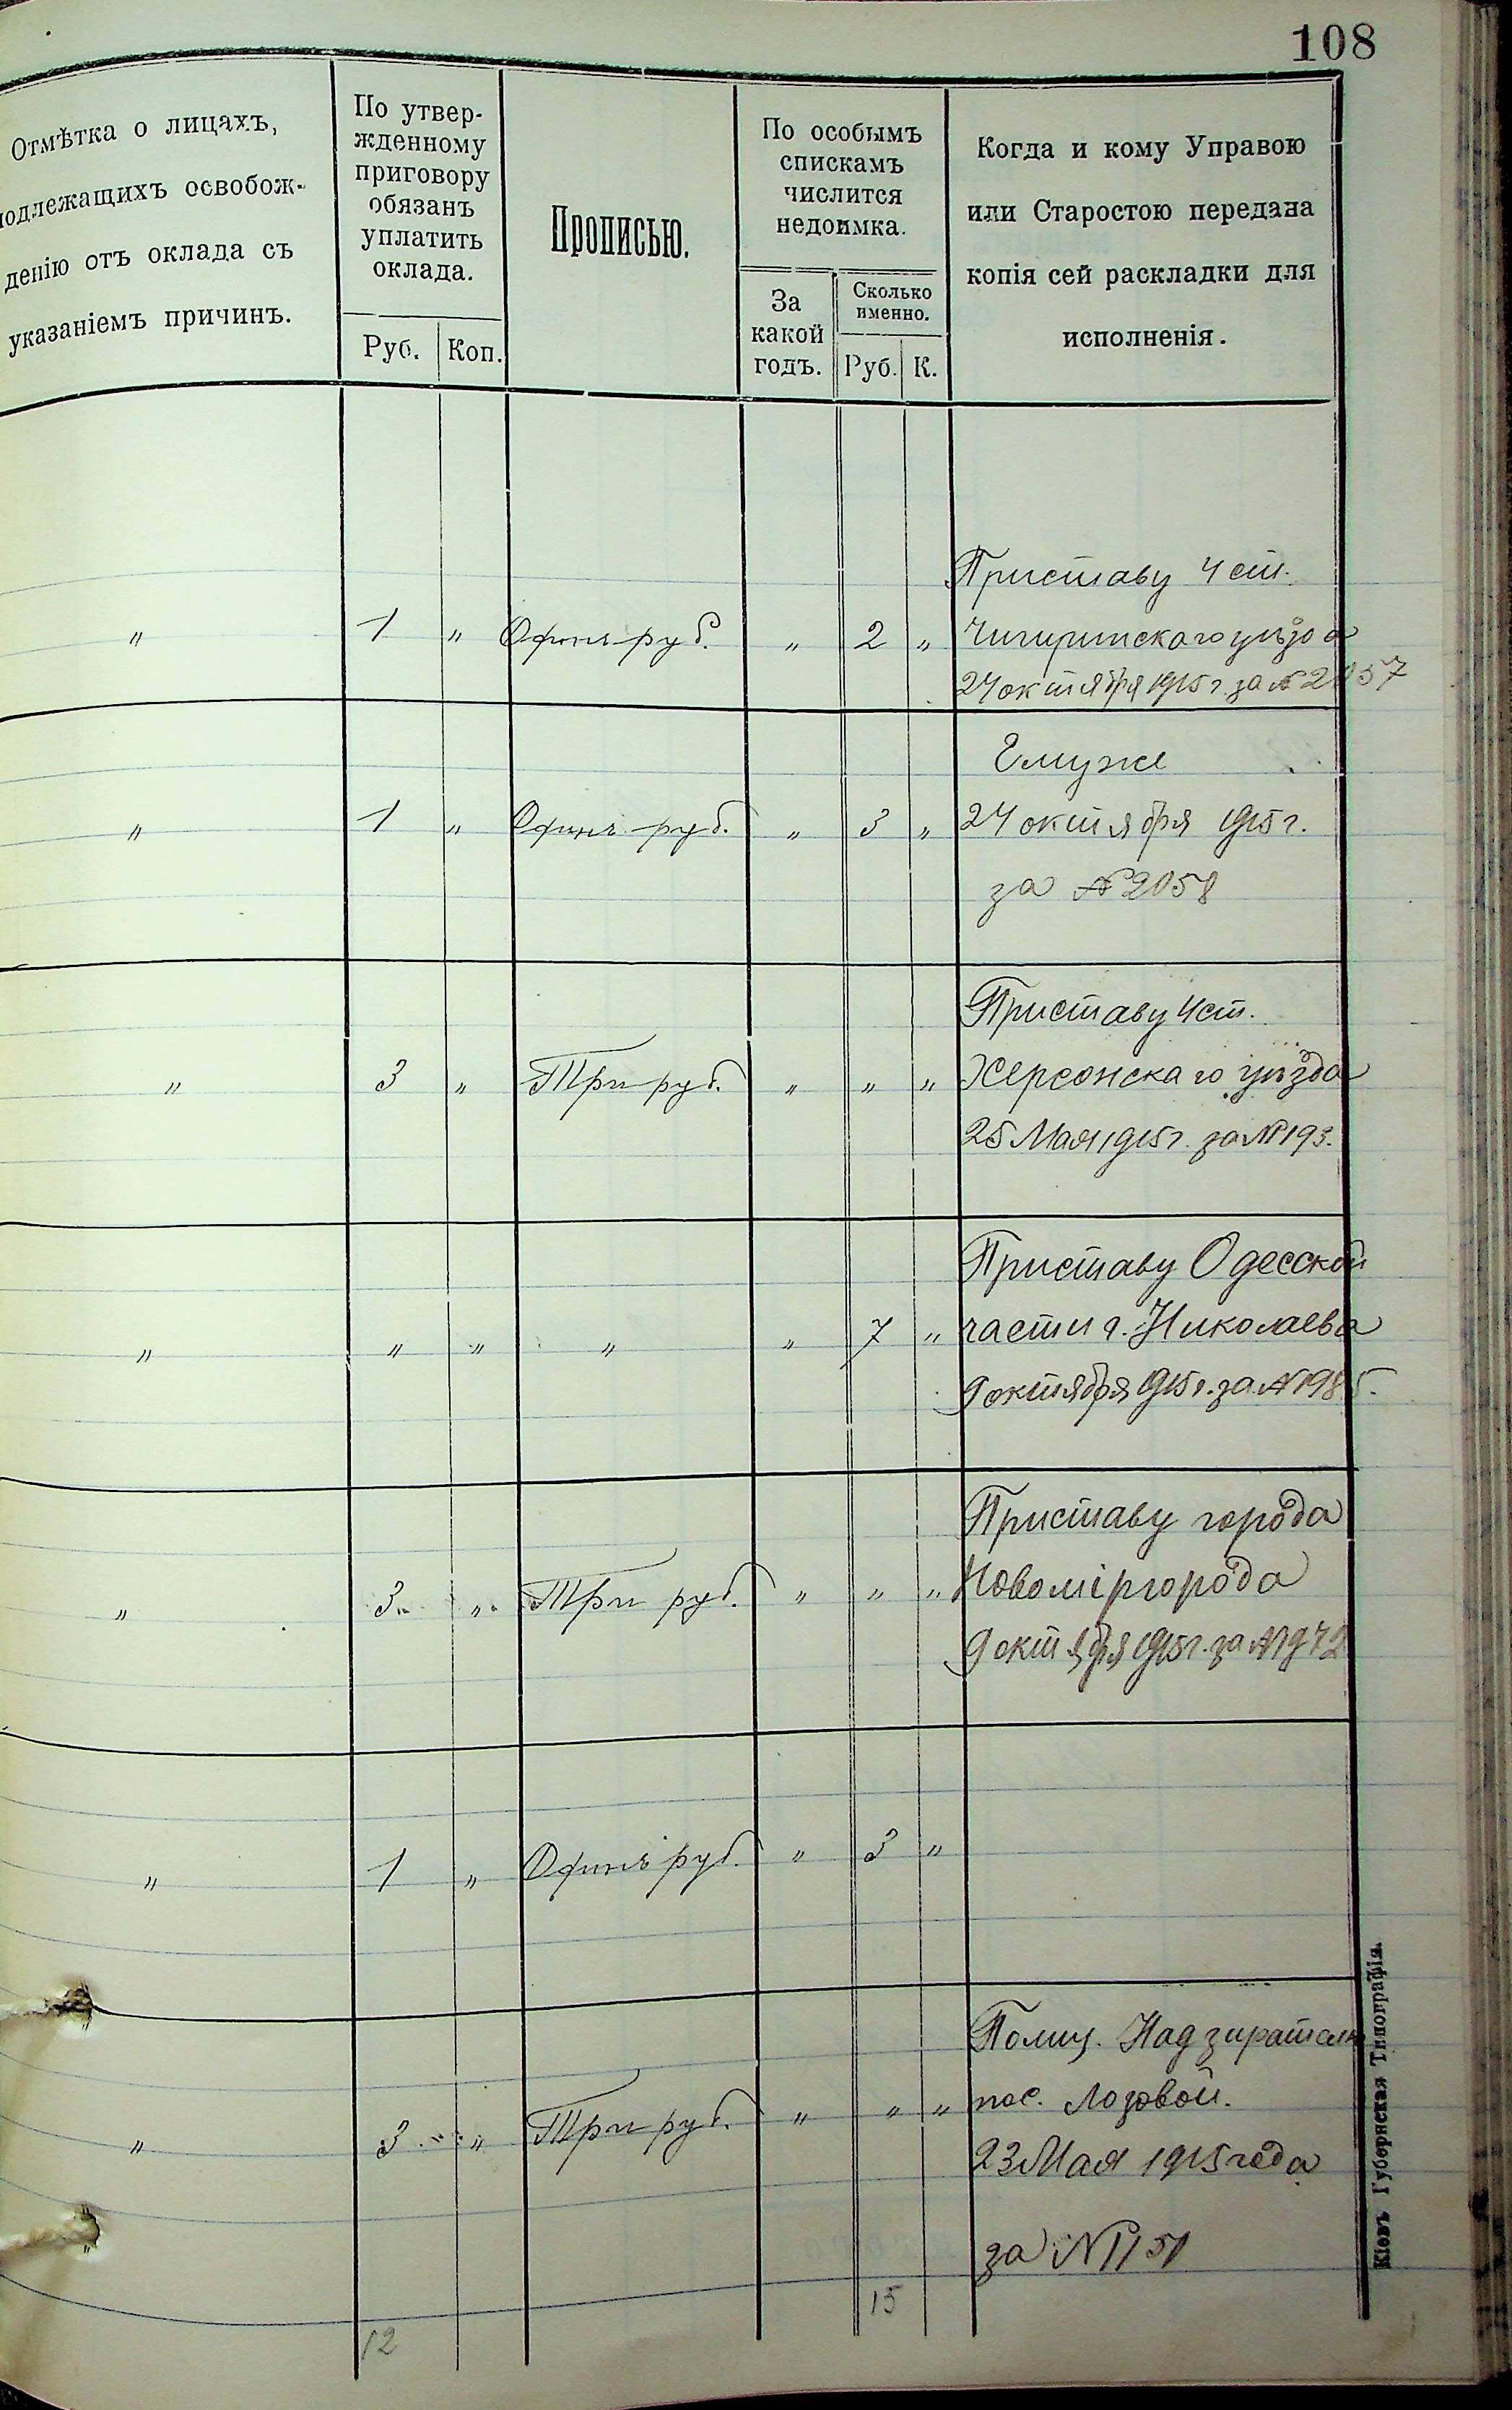 108
Отмѣтка о лицахъ,
подлежащихъ освобож-
денію отъ оклада съ
указаніемъ причинъ.
По утвер-
жденному
приговору
обязанъ
уплатить
оклада.
Руб. Коп.
Прописью.
По особымъ
спискамъ
числится
недоимка.
За
какой
годъ.
Сколько
именно.
Руб. К.
Когда и кому Управою
или Старостою передана
копія сей раскладки для
исполненія.
Приставу 4 ст.
" 1 " Одинъ руб. " 2 " Чигиринскаго уѣзда
24 октября 1915 г. за № 2057
Ему же
" 1 " Одинъ руб. " 3 " 24 октября 1915 г.
за № 2058
Приставу 4 ст.
" 3 " Три руб. " " " Херсонскаго уѣзда
25 Мая 1915 г. за № 1193.
Приставу Одесской
" " " " " 7 " части г. Николаева
9 октября 1915 г. за № 1985.
Приставу города
" 3 " Три руб. " " " Новоміргорода
9 октября 1915 г. за № 1972
" 1 " Одинъ руб. " 3 "
Полиц. Надзирателю
" 3 " Три руб. " " " пос. Лозовой.
23 Мая 1915 года
"
за № 1151
12 15
Кіевъ Губернская Типографія.